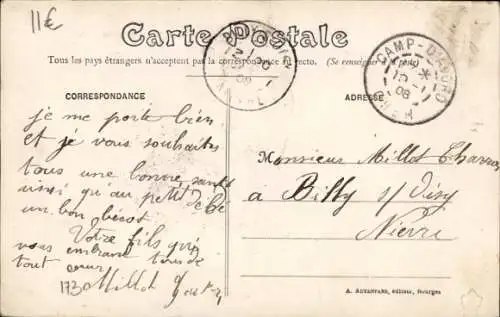 11€
Carte Postale
Tous les pays étrangers n'acceptent pas la correspondance au recto. (Se renseigner à la poste)
CAMP-D'AVORD
CHER
08
CORRESPONDANCE
ADRESSE
je me porte bien
et je vous souhaites
tous une bonne santé
ainsi qu'au petit bébé
un bon bécot
Votre fils qui
vous embrasse tous de
tout cœur
173 Millot
Monsieur Millot Charron
à Billy s/ Oisy
Nièvre
A. AUXENFANS, éditeur, Bourges